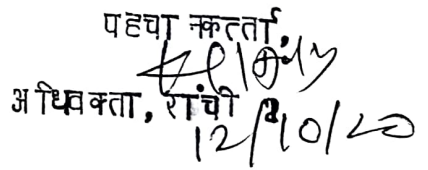 पहचानकर्त्ता,
अधिवक्ता, रांची
12/10/20